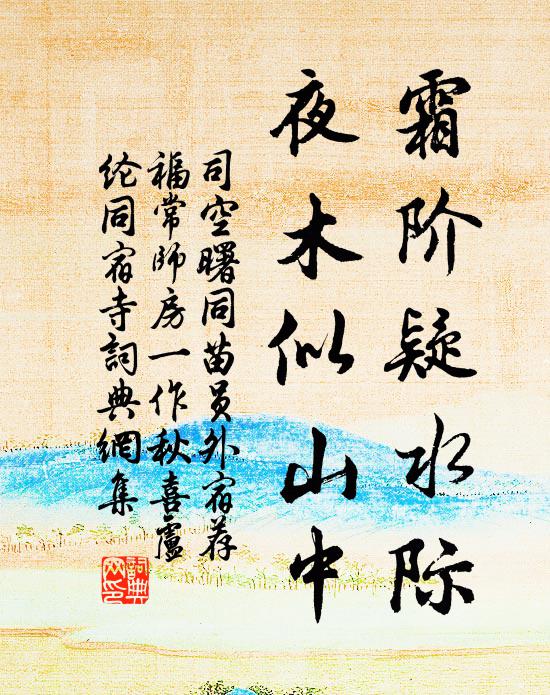 霜阶疑水际
夜木似山中
司空曙同苗员外宿荐
福常师房一作秋喜盧
纶同宿寺詞典網集
詞典
网印